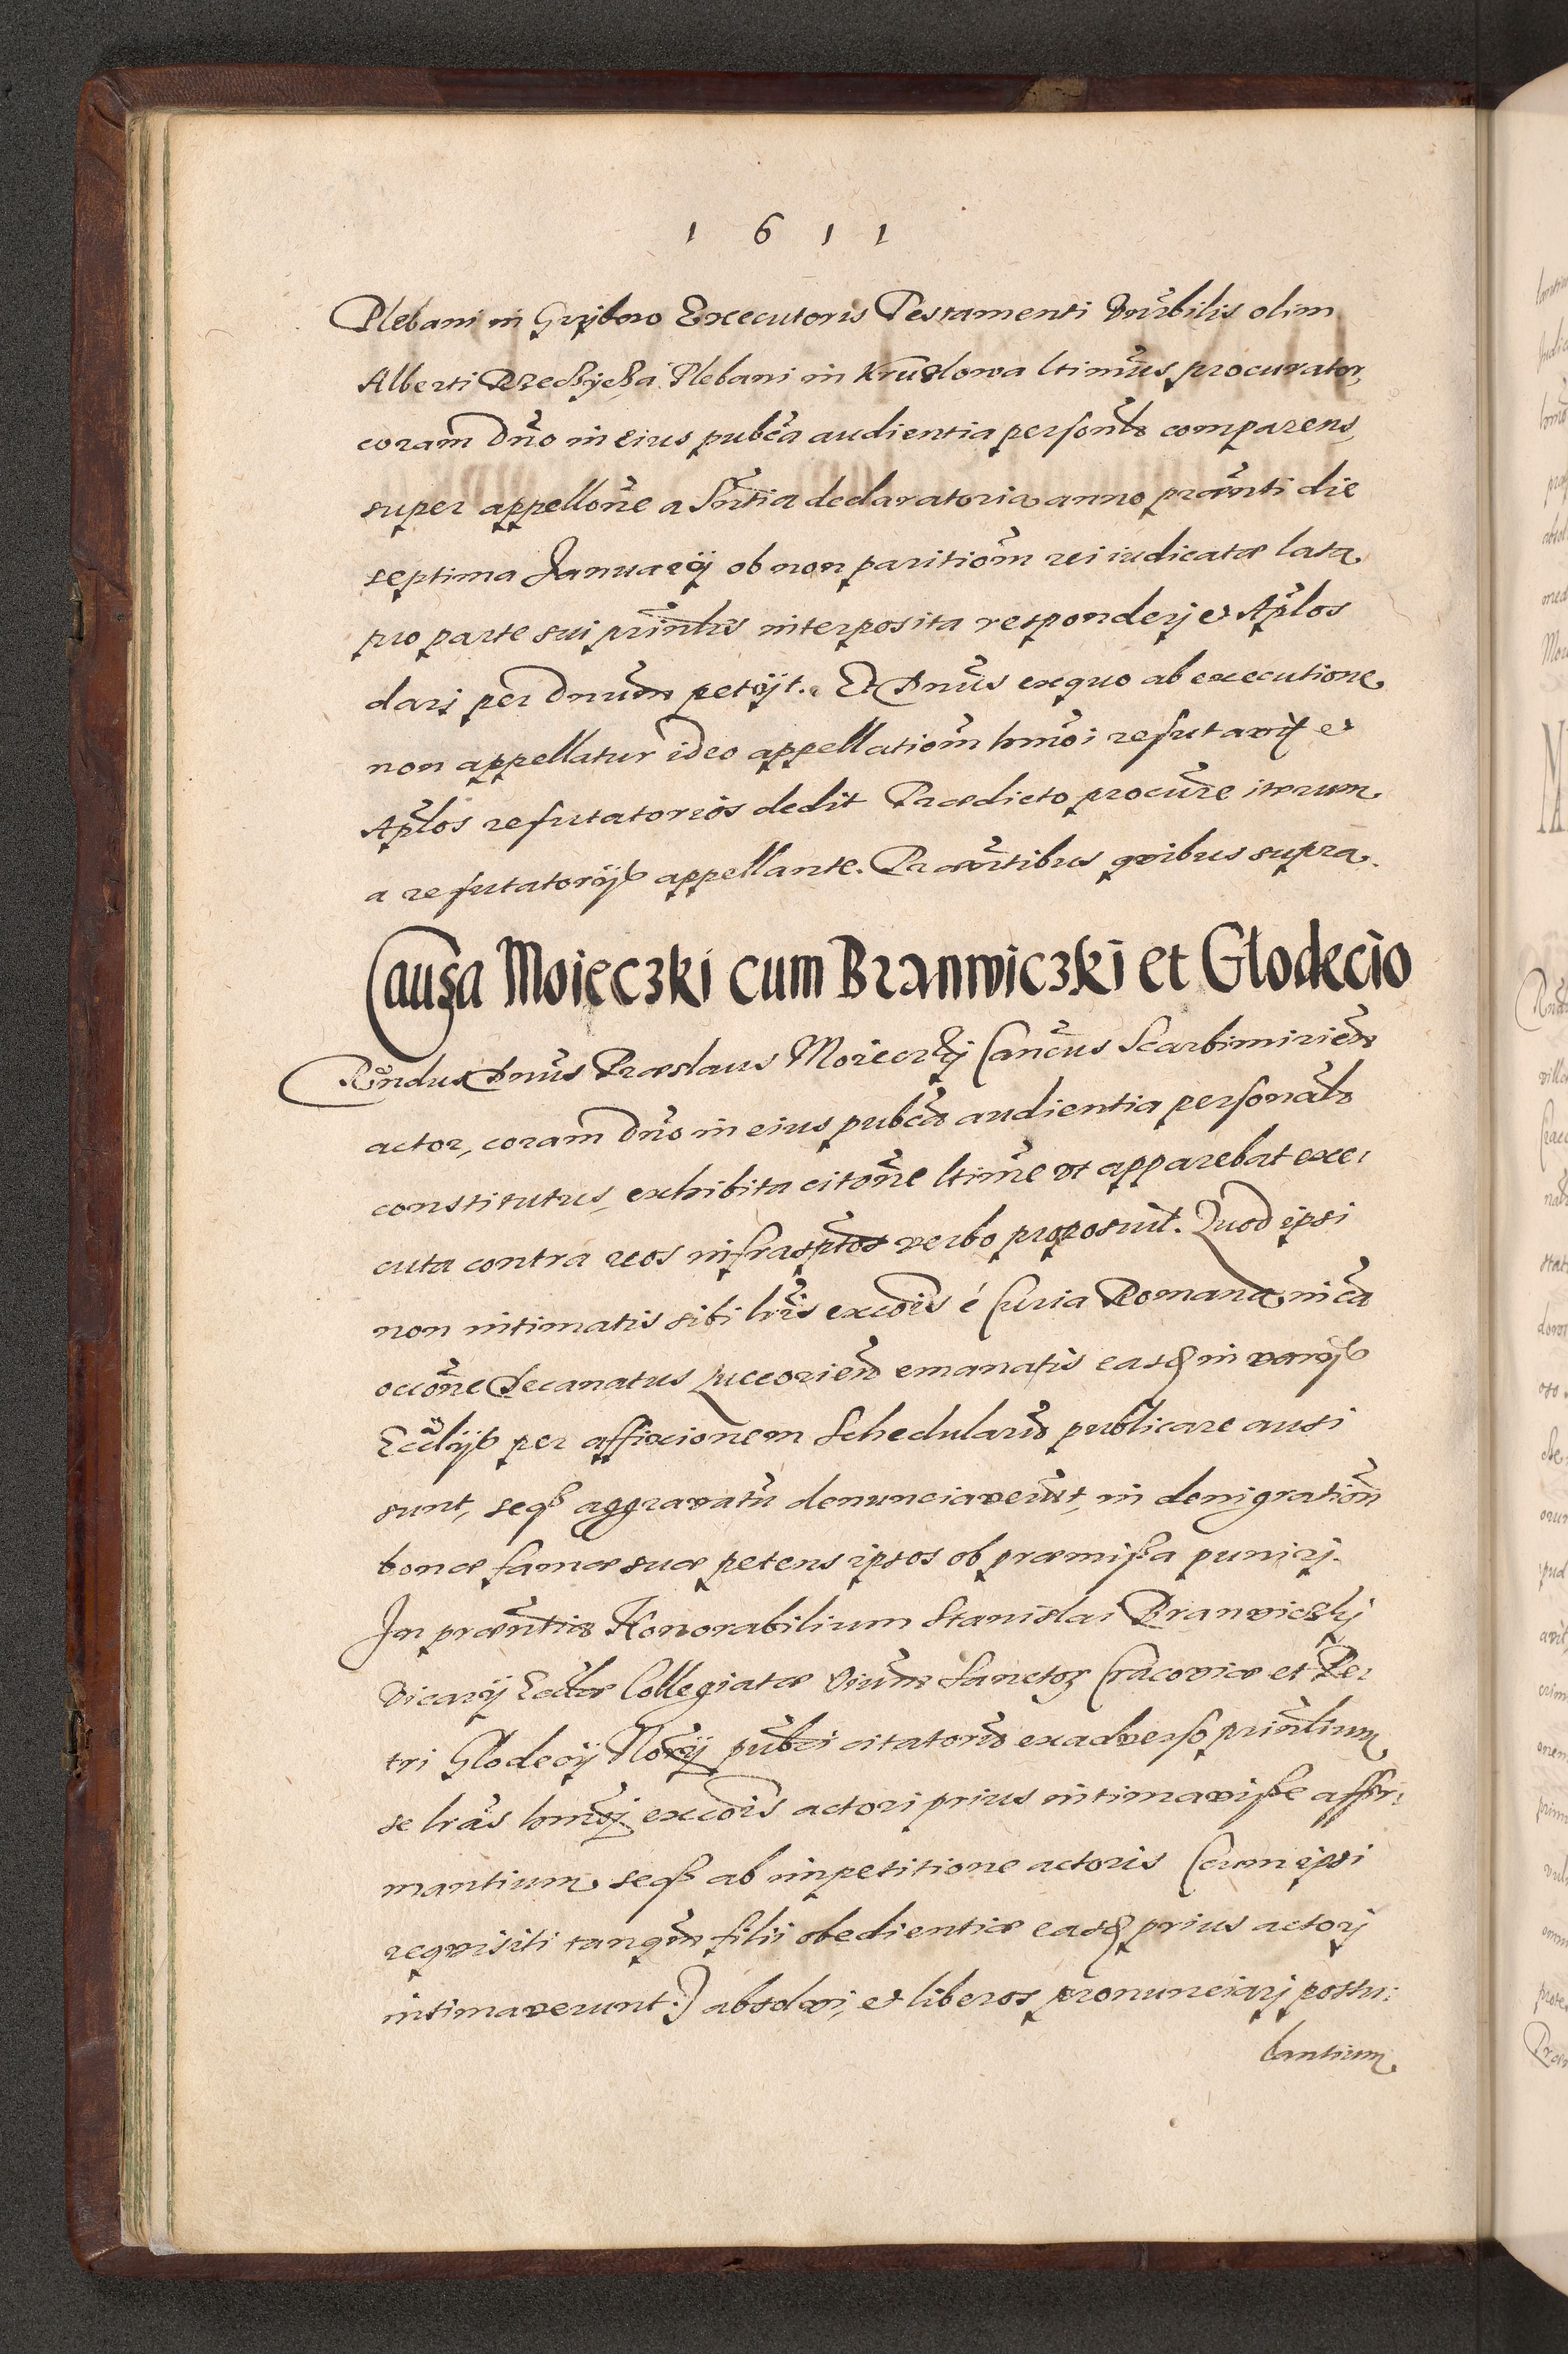 1 6 1 1
Plebani in Grybow Executoris Testamenti Vnrbilis olim
Alberti Plebani in Kruzlowa ltimus procurator,
coram Dno in eius pubca audientia personlr comparens,
super appellone a Sntia declaratoria anno praenti die
septima Januarij ob non paritiom rei iudicatae lata
pro parte sui prinlis interposita responderj et Aplos
darj per Dnum petijt. Et Dnus ex quo ab executione
non appellatur ideo appellatiom hmoi refutavit et
Aplos refutatorios dedit Praedicto procure iterum
a refutatorijs appellante. Praentibus quibus supra.
Causa Moieczki cum Branwiczki et Glodecio
Rndus Dnus Praeslaus Moieczkij Cancus Scarbimirien
actor, coram Dno in eius pubca audientia personalr
constitutus, exhibita citone ltime vt apparebat exe:
cuta contra reos infrasptos verbo proposuit. Quod ipsi
non intimatis sibi lris excois é Curia Romana in ca
occone Decanatus Luceorien emanatis easq in varijs
Ecclijs per affixionem Schedularu publicare ausi
sunt, seqs aggravatu denunciaverut, in denigration
bonae famae suae petens ipsos ob praemissa punirj.
In praentia Honorabilium Stanislai Branwiczkj
Vicarij Ecclae Collegiatae Oium Sanctor Cracoviae et Pe:
tri Glodecij Norij pubci citatoru ex adverso prinlium
se lras hmoj excois actori prius intimavisse affir:
mantium seqs ab impetitione actoris (cum ipsi
requisiti tanqm filii obedientiae easq prius actorj
intimaverunt:) absolvi, et liberos pronunciarj postu:
lantium